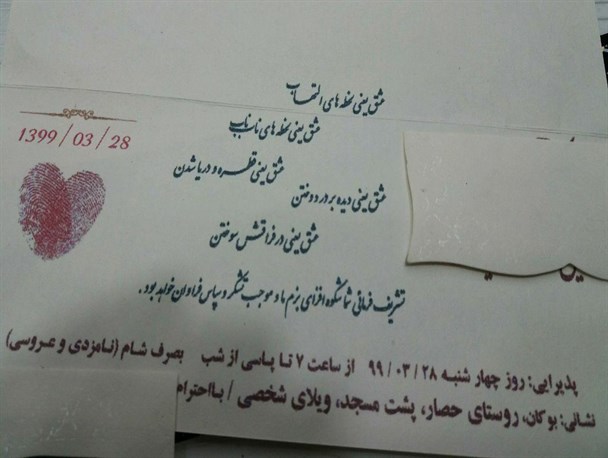 عشق یعنی لحظه های التهاب
1399/03/28
عشق یعنی لحظه های ناب ناب
عشق یعنی قطره و دریا شدن
عشق یعنی دیده بر در دوختن
عشق یعنی در فراقش سوختن
تشریف فرمائی شما شکوه افزای بزم ما و موجب تشکر و سپاس فراوان خواهد بود.
پذیرایی: روز چهار شنبه ۹۹/۰۳/۲۸ از ساعت ۷ تا پاسی از شب بصرف شام (نامزدی و عروسی)
نشانی: بوکان، روستای حصار، پشت مسجد، ویلای شخصی / بااحترام